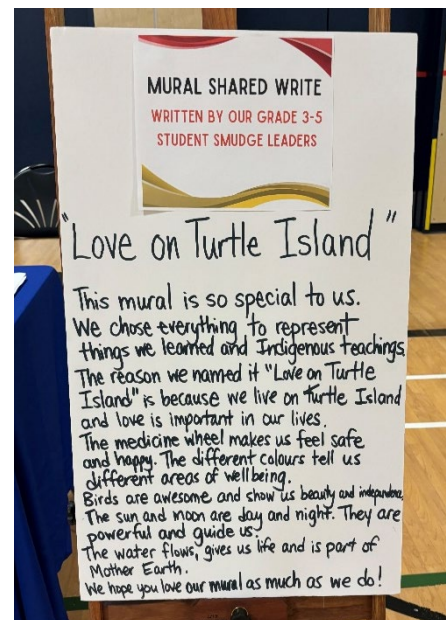 MURAL SHARED WRITE
WRITTEN BY OUR GRADE 3-5
STUDENT SMUDGE LEADERS
"Love on Turtle Island"
This mural is so special to us.
We chose everything to represent
things we learned and Indigenous teachings.
The reason we named it "Love on Turtle
Island" is because we live on Turtle Island
and love is important in our lives.
The medicine wheel makes us feel safe
and happy. The different colours tell us
different areas of wellbeing.
Birds are awesome and show us beauty and independence.
The sun and moon are day and night. They are
powerful and guide us.
The water flows, gives us life and is part of
Mother Earth.
We hope you love our mural as much as we do!